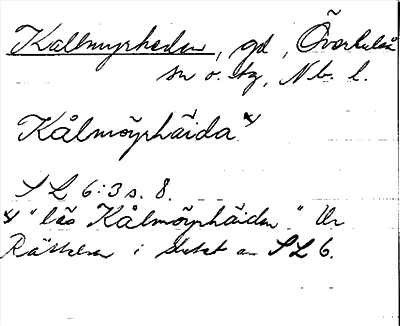 Kallmyrheden, gd, Överluleå
sn o. tg, Nb. l.
Kålmöyrhäida x)
SL 6:3 s. 8.
x) "läs Kålmöyrhäiden" Ur
Rättelser i slutet av SL 6.